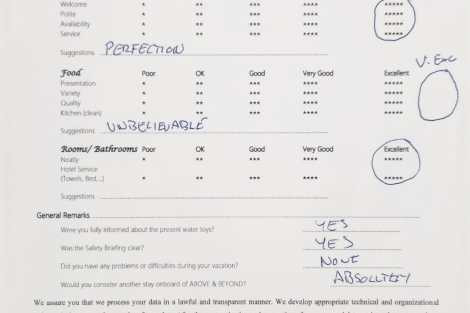 Welcome * ** *** **** *****
Polite * ** *** **** *****
Availability * ** *** **** *****
Service * ** *** **** *****
Suggestions PERFECTION
V. Exc
Food Poor OK Good Very Good Excellent
Presentation * ** *** **** *****
Variety * ** *** **** *****
Quality * ** *** **** *****
Kitchen (clean) * ** *** **** *****
Suggestions UNBELIEVABLE
Rooms/ Bathrooms Poor OK Good Very Good Excellent
Neatly * ** *** **** *****
Hotel Service
(Towels, Bed....) * ** *** **** *****
Suggestions
General Remarks
Were you fully informed about the present water toys? YES
Was the Safety Briefing clear? YES
Did you have any problems or difficulties during your vacation? NONE
Would you consider another stay onboard of ABOVE & BEYOND? ABSOLUTELY
We assure you that we process your data in a lawful and transparent manner. We develop appropriate technical and organizational